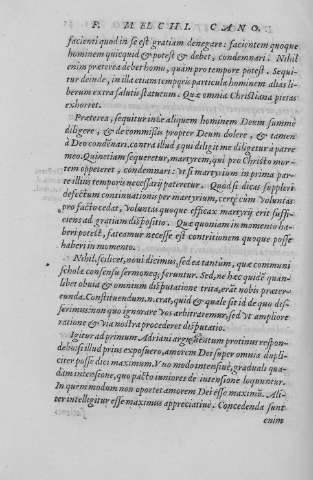 F. MELCHI. CANO.
facienti quod in se est gratiam denegare: facientem quoque
hominem quicquid & potest & debet, condemnari. Nihil
enim præterea debet homo, quam pro tempore potest. Sequi-
tur deinde, in illa etiam temporis particula hominem alias li-
berum extra salutis statutum. Quæ omnia Christiana pietas
exhorret.
Præterea, sequitur inibi aliquem hominem Deum summè
diligere, & de commissis propter Deum dolere, & tamen
à Deo condemnari, contra illud: qui diligit me diligetur à patre
meo. Quinetiam sequeretur, martyrem, qui pro Christo mor-
tem oppeteret, condemnari: ut si martyrium in prima par-
te illius temporis necessarij pateretur. Quòd si dicas suppleri
defectum continuationis per martyrium, certè cùm voluntas
pro facto cedat, voluntas quoque efficax martyrij erit suffi-
ciens ad gratiam dispositio. Quæ quoniam in momento ha-
beri potest, fateamur necesse est contritionem quoque posse
haberi in momento.
Nihil, scilicet, noui dicimus, sed ea tantùm, quæ communi
scholæ consensu sermoneq; feruntur. Sed, ne hæc quidē quam-
libet obuia & omnium disputatione trita, erāt nobis præter-
eunda. Constituendum .n. erat, quid & quale sit id de quo dis-
serimus: non quo ignorare vos arbitraremur, sed vt ampliore
ratione & via nostra procederet disputatio.
Igitur ad primum Adriani argumentum protinus respon-
debo: si illud prius exposuero, amorem Dei super omnia dupli-
citer posse dici maximum. Vno modo intensiuè, graduali quo-
dam intensione, quo pacto iuniores de intensione loquuntur.
In quem modum non oportet amorem Dei esse maximū. Ali-
ter intellegitur esse maximus appreciatiuè. Concedenda sunt
enim